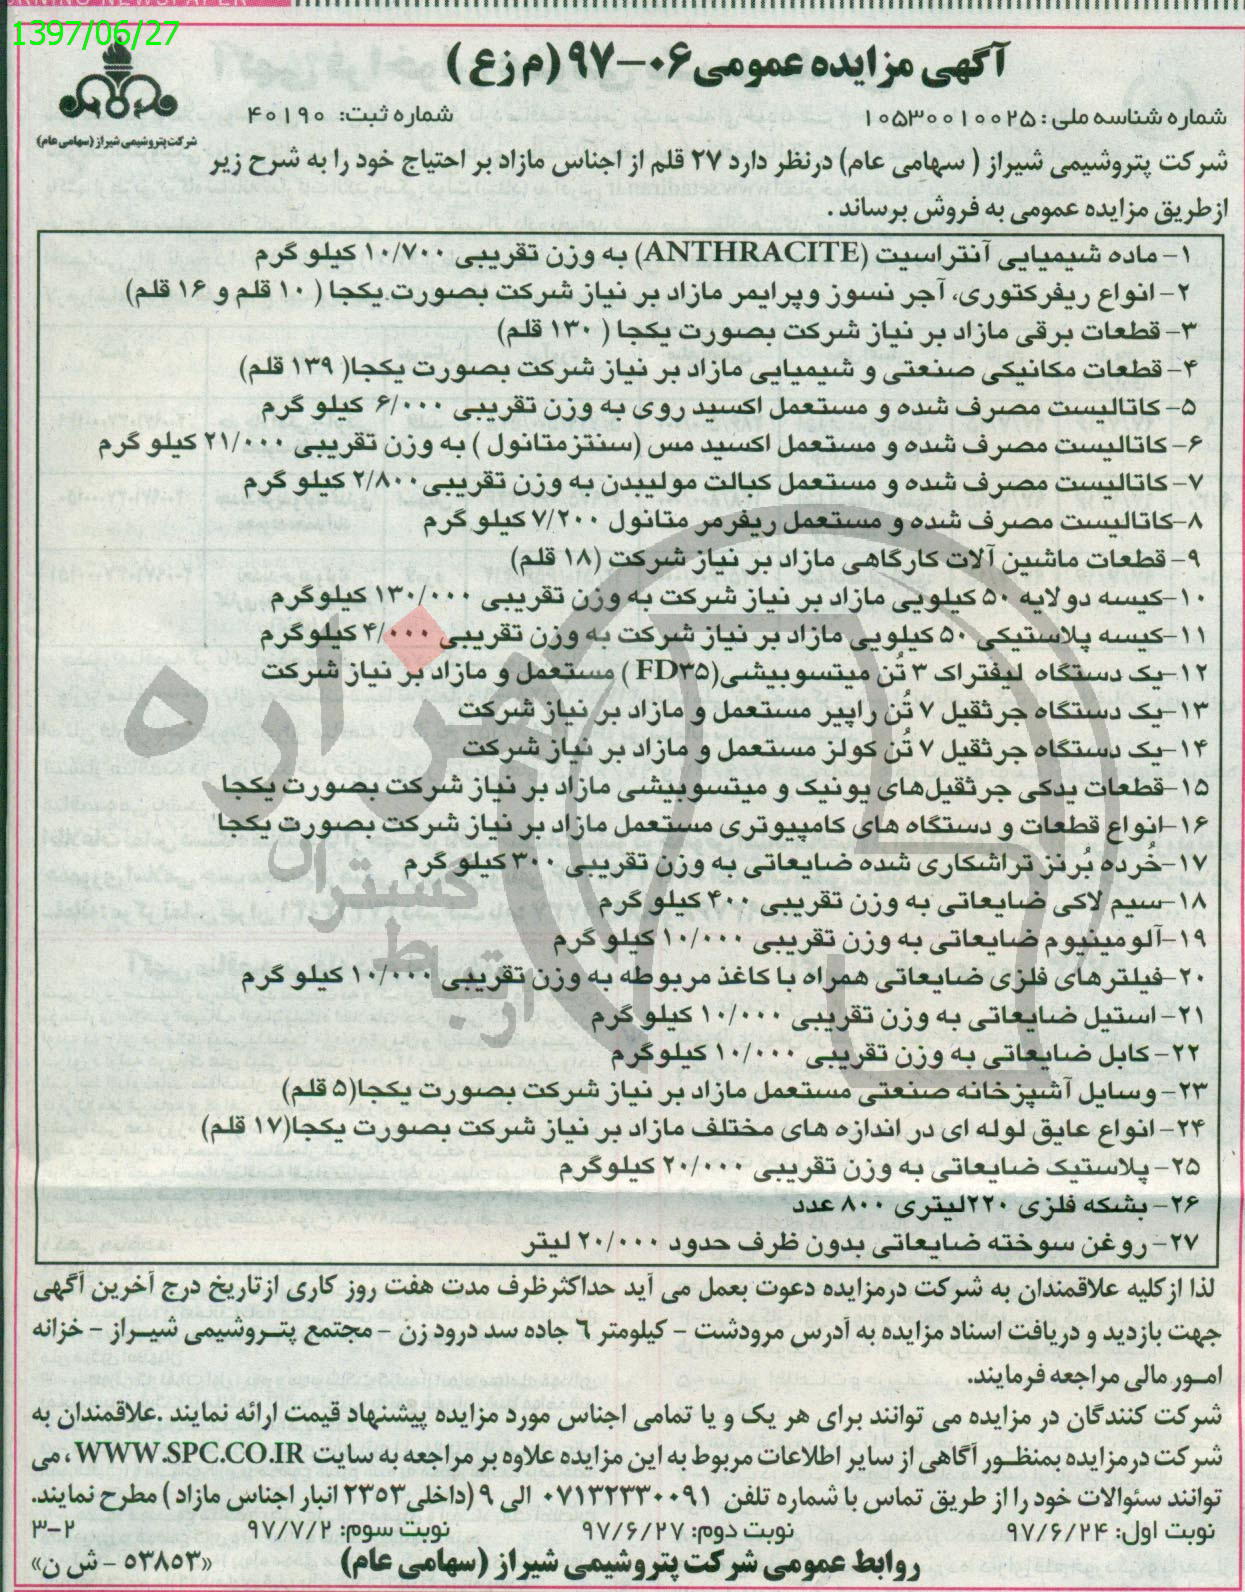 1397/06/27
آگهی مزایده عمومی ۰۶-۹۷ (م ز ع)
شرکت پتروشیمی شیراز (سهامی عام)
شماره شناسه ملی: ۱۰۵۳۰۰۱۰۰۲۵ شماره ثبت: ۴۰۱۹۰
شرکت پتروشیمی شیراز ( سهامی عام) درنظر دارد ۲۷ قلم از اجناس مازاد بر احتیاج خود را به شرح زیر
ازطریق مزایده عمومی به فروش برساند .
۱- ماده شیمیایی آنتراسیت (ANTHRACITE) به وزن تقریبی ۱۰/۷۰۰ کیلو گرم
۲- انواع ریفرکتوری، آجر نسوز وپرایمر مازاد بر نیاز شرکت بصورت یکجا ( ۱۰ قلم و ۱۶ قلم)
۳- قطعات برقی مازاد بر نیاز شرکت بصورت یکجا ( ۱۳۰ قلم)
۴- قطعات مکانیکی صنعتی و شیمیایی مازاد بر نیاز شرکت بصورت یکجا( ۱۳۹ قلم)
۵- کاتالیست مصرف شده و مستعمل اکسید روی به وزن تقریبی ۶/۰۰۰ کیلو گرم
۶- کاتالیست مصرف شده و مستعمل اکسید مس (سنتزمتانول ) به وزن تقریبی ۲۱/۰۰۰ کیلو گرم
۷- کاتالیست مصرف شده و مستعمل کبالت مولیبدن به وزن تقریبی۲/۸۰۰ کیلو گرم
۸-کاتالیست مصرف شده و مستعمل ریفرمر متانول ۷/۲۰۰ کیلو گرم
۹- قطعات ماشین آلات کارگاهی مازاد بر نیاز شرکت (۱۸ قلم)
۱۰-کیسه دولایه ۵۰ کیلویی مازاد بر نیاز شرکت به وزن تقریبی ۱۳۰/۰۰۰ کیلوگرم
۱۱-کیسه پلاستیکی ۵۰ کیلویی مازاد بر نیاز شرکت به وزن تقریبی ۴/۰۰۰ کیلوگرم
۱۲-یک دستگاه لیفتراک ۳ تُن میتسوبیشی(FD۳۵ ) مستعمل و مازاد بر نیاز شرکت
۱۳-یک دستگاه جرثقیل ۷ تُن راپیر مستعمل و مازاد بر نیاز شرکت
۱۴-یک دستگاه جرثقیل ۷ تُن کولز مستعمل و مازاد بر نیاز شرکت
۱۵-قطعات یدکی جرثقیل‌های یونیک و میتسوبیشی مازاد بر نیاز شرکت بصورت یکجا
۱۶-انواع قطعات و دستگاه های کامپیوتری مستعمل مازاد بر نیاز شرکت بصورت یکجا
۱۷-خُرده بُرنز تراشکاری شده ضایعاتی به وزن تقریبی ۳۰۰ کیلو گرم
۱۸-سیم لاکی ضایعاتی به وزن تقریبی ۴۰۰ کیلو گرم
۱۹-آلومینیوم ضایعاتی به وزن تقریبی ۱۰/۰۰۰ کیلو گرم
۲۰-فیلترهای فلزی ضایعاتی همراه با کاغذ مربوطه به وزن تقریبی ۱۰/۰۰۰ کیلو گرم
۲۱- استیل ضایعاتی به وزن تقریبی ۱۰/۰۰۰ کیلو گرم
۲۲- کابل ضایعاتی به وزن تقریبی ۱۰/۰۰۰ کیلوگرم
۲۳- وسایل آشپزخانه صنعتی مستعمل مازاد بر نیاز شرکت بصورت یکجا(۵ قلم)
۲۴- انواع عایق لوله ای در اندازه های مختلف مازاد بر نیاز شرکت بصورت یکجا(۱۷ قلم)
۲۵- پلاستیک ضایعاتی به وزن تقریبی ۲۰/۰۰۰ کیلوگرم
۲۶- بشکه فلزی ۲۲۰لیتری ۸۰۰ عدد
۲۷- روغن سوخته ضایعاتی بدون ظرف حدود ۲۰/۰۰۰ لیتر
هزاره
گستران
ارتباط
لذا ازکلیه علاقمندان به شرکت درمزایده دعوت بعمل می آید حداکثرظرف مدت هفت روز کاری ازتاریخ درج آخرین آگهی
جهت بازدید و دریافت اسناد مزایده به آدرس مرودشت - کیلومتر ۶ جاده سد درود زن - مجتمع پتـروشیمی شیـراز - خزانه
امـور مالی مراجعه فرمایند.
شرکت کنندگان در مزایده می توانند برای هر یک و یا تمامی اجناس مورد مزایده پیشنهاد قیمت ارائه نمایند .علاقمندان به
شرکت درمزایده بمنظـور آگاهی از سایر اطلاعات مربوط به این مزایده علاوه بر مراجعه به سایت WWW.SPC.CO.IR ، می
توانند سئوالات خود را از طریق تماس با شماره تلفن ۰۷۱۳۲۳۳۰۰۹۱ الی ۹ (داخلی۲۳۵۳ انبار اجناس مازاد ) مطرح نمایند.
نوبت اول: ۹۷/۶/۲۴ نوبت دوم: ۹۷/۶/۲۷ نوبت سوم: ۹۷/۷/۲ ۳-۲
روابط عمومی شرکت پتروشیمی شیراز (سهامی عام) «۵۳۸۵۳ - ش ن»